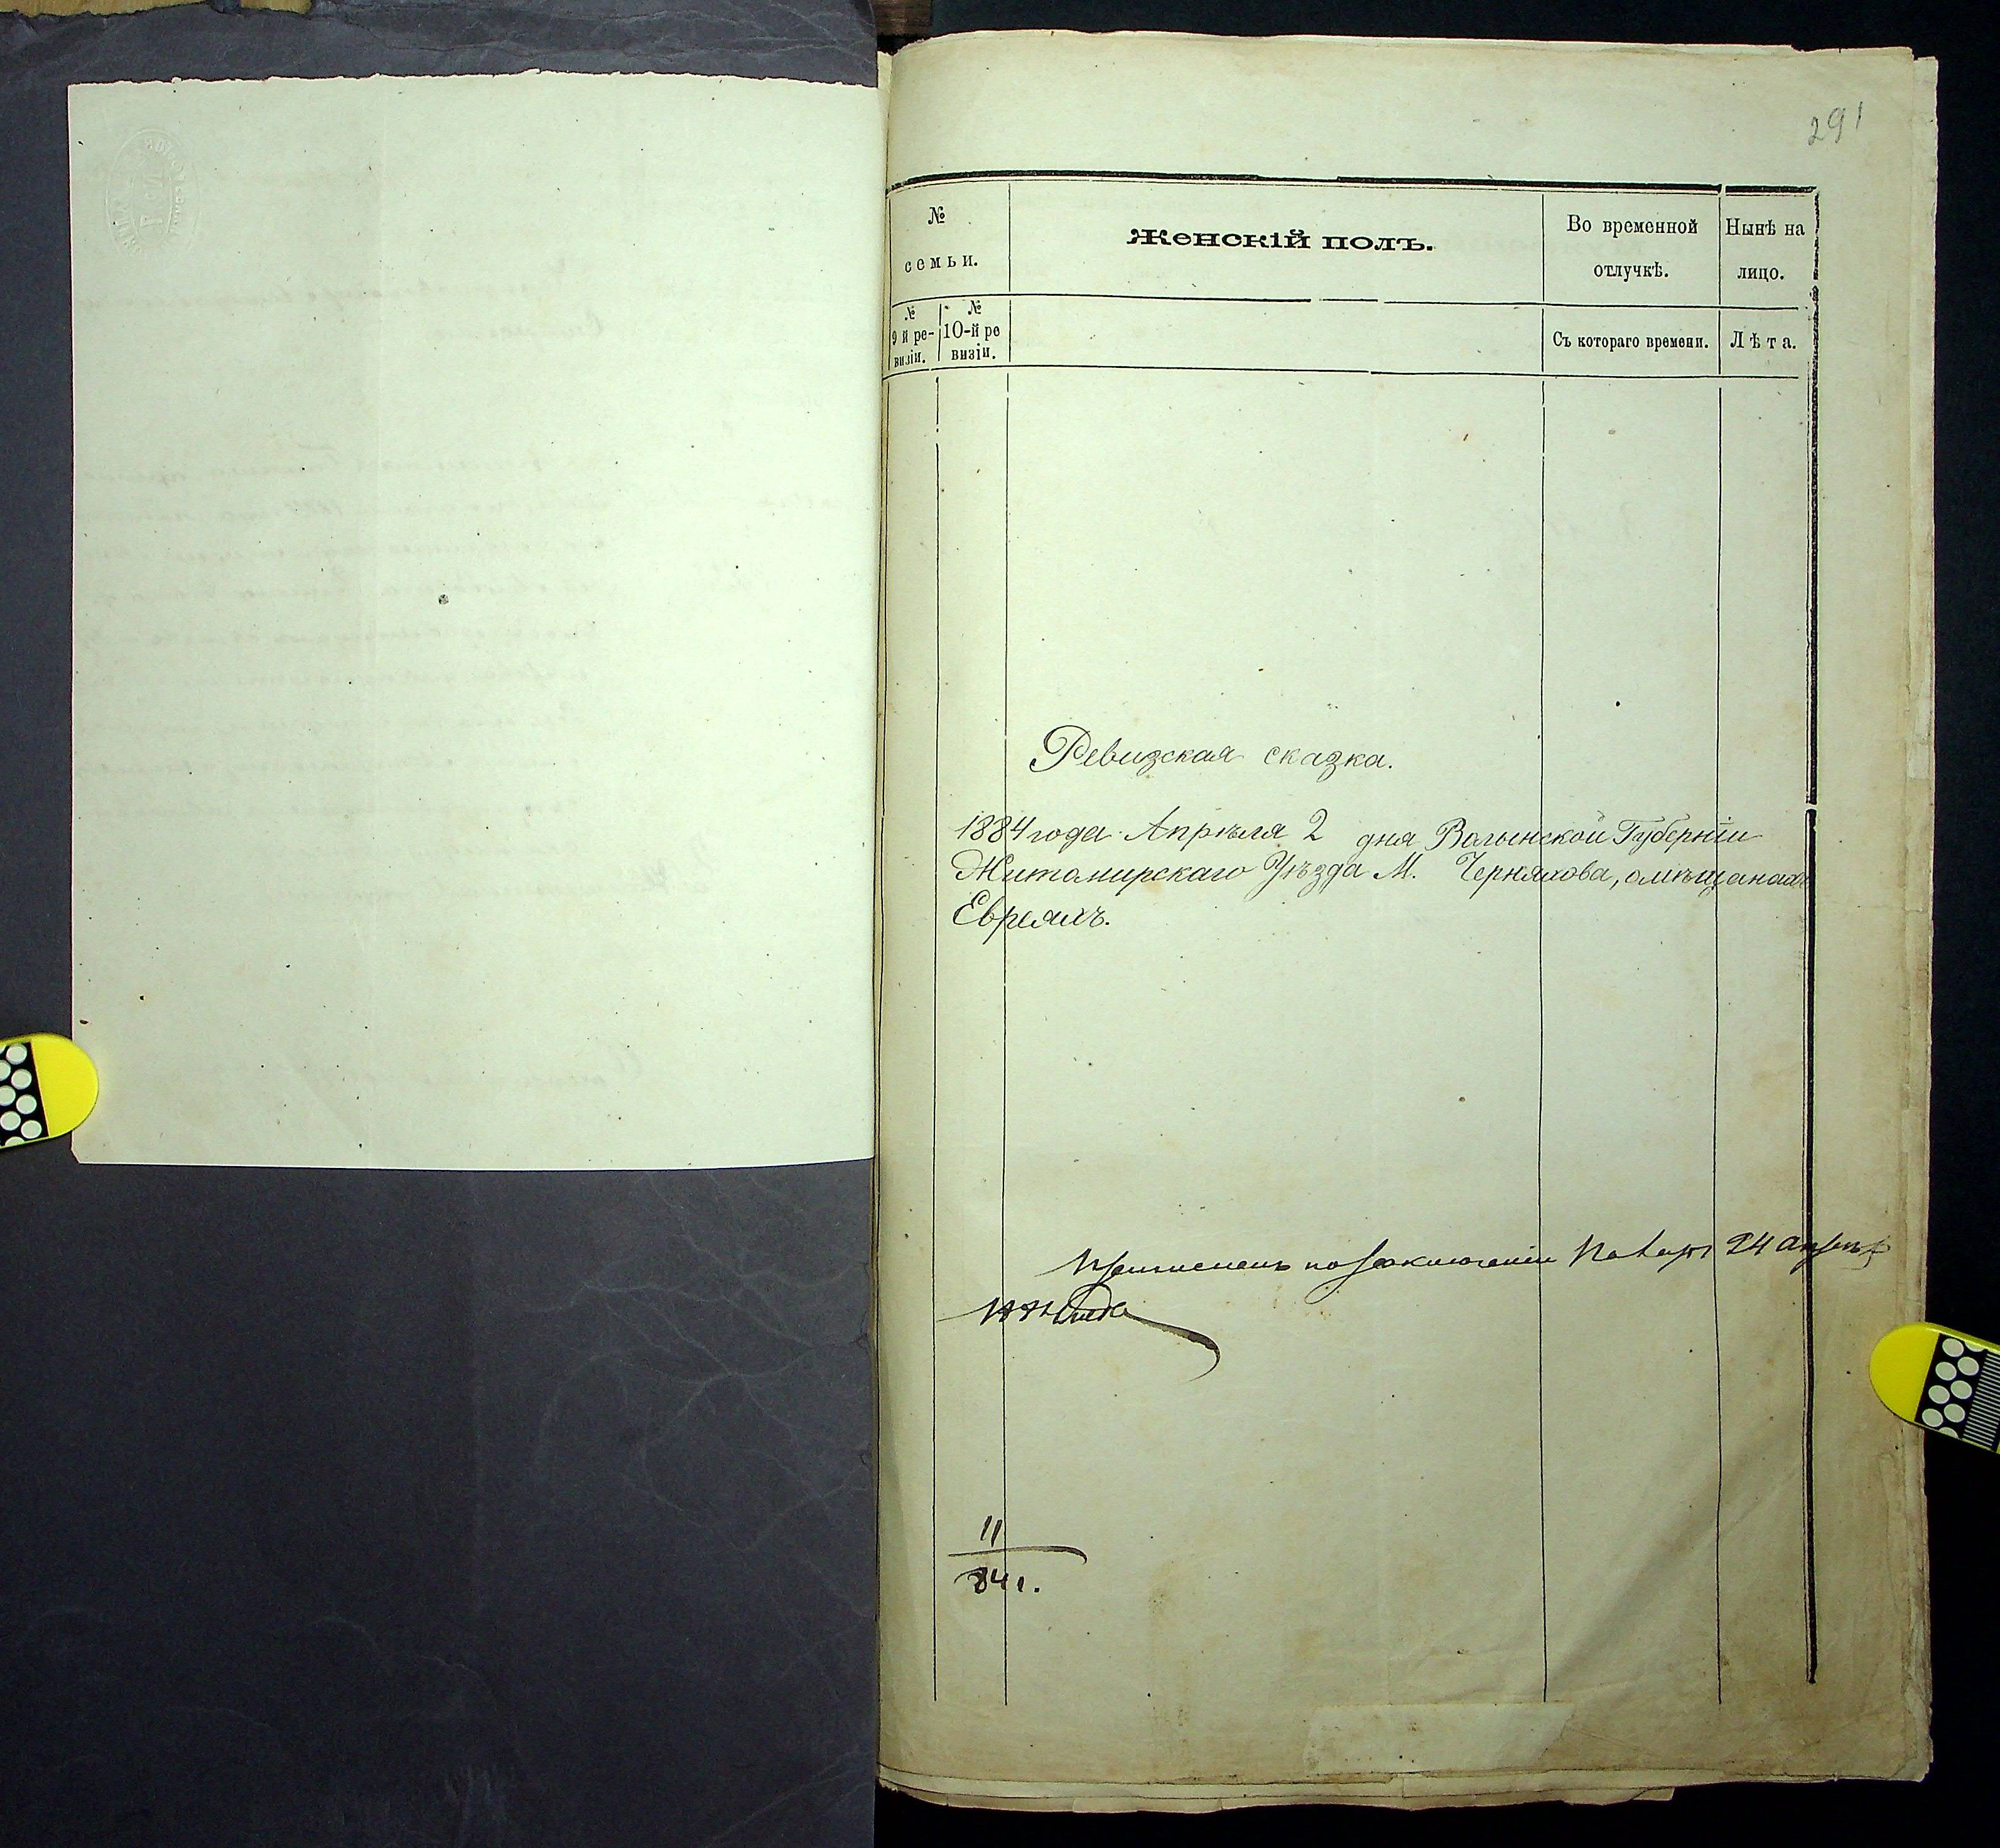 291
№ семьи.
Женскій полъ.
Во временной отлучкѣ.
Нынѣ на лицо.
№ 9 й ре-визіи.
№ 10-й ре визіи.
Съ котораго времени.
Лѣта.
Ревизская сказка.
1884 года Апрѣля 2 дня Волынской Губерніи
Житомирскаго Уѣзда М. Черняхова, о мѣщанахъ
Евреяхъ.
по заключеніи 24 апрѣля
11
84 г.